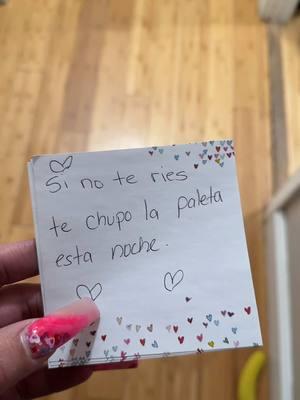 Si no te ries
te chupo la paleta
esta noche.